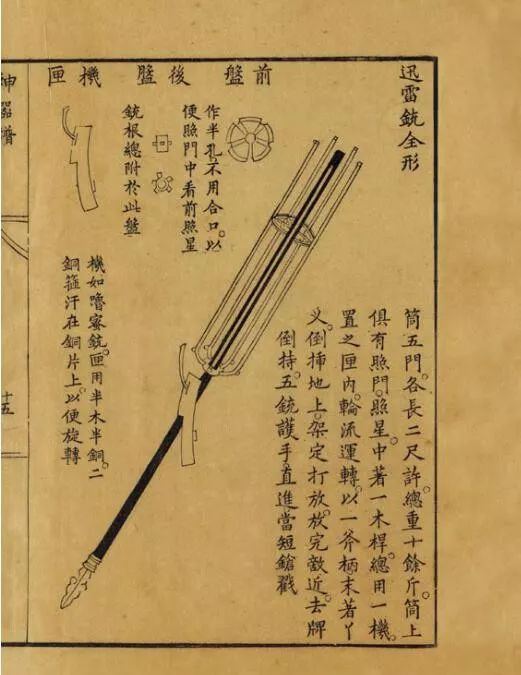 迅雷銃全形
筒五門。各長二尺許。總重十餘斤。筒上
俱有照門。照星。中著一木桿。總用一機。
置之匣內。輪流運轉。以一斧柄末著丫
叉。倒插地上。架定打放。放完敵近。去牌
倒持。五銃護手。直進當短鎗戳
前盤
作半孔。不用合口。以
便照門中看前照星
後盤
銃根總附於此盤
機匣
機如嚕密銃。匣用半木半銅。二
銅箍汗在銅片上。以便旋轉
神器譜
十五